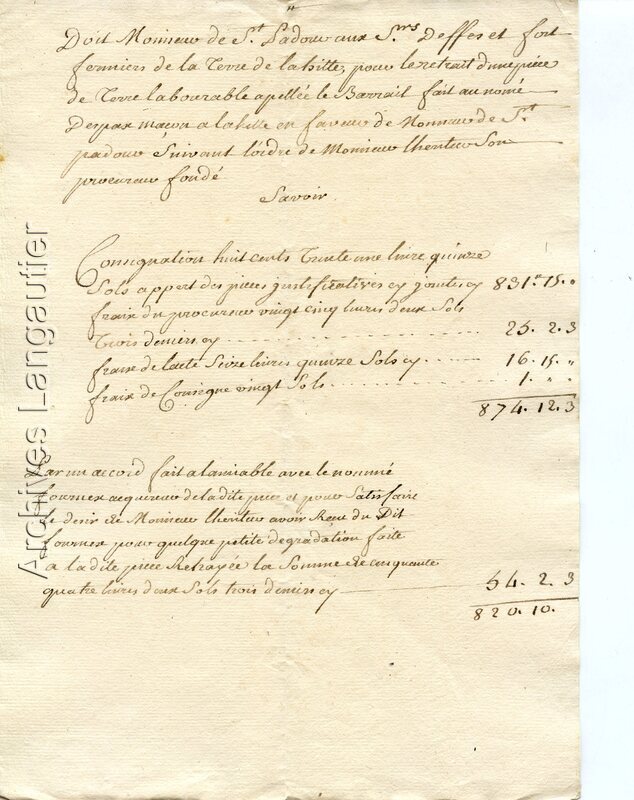 Doit Monsieur de St. Padouu aux Srs. Deffes et fort
fermiers de la Terre de lahitte, pour le retrait d'une piece
de Terre labourable apellée le Barrail fait au nomé
Despax macon a lahitte en faveur de Monsieur de St.
padouu Suivant l'oidre de Monsieur lheritier Son
procureur fondé
Savoir
Consignation huit cents Trente une livre quinze
Sols appert des pieces justificatives cy jointes cy 831# 15. "
fraix du procureur vingt cinq livres deux Sols
Trois deniers cy 25. 2. 3
fraix de lacte Seize livres quinze Sols cy 16. 15. "
fraix de Consigne vingt Sols 1. " "
874. 12. 3
Par un accord fait a lamiable avec le nommé
fournex acquereur de la dite piece et pour Satisfaire
le desir de Monsieur lheritier avoir Receu du Dit
fournex pour quelque petite degradation faite
a la dite piece Retrayée la Somme de cinquante
quatre livres deux Sols trois deniers cy 54. 2. 3
820. 10.
Archives Langautier